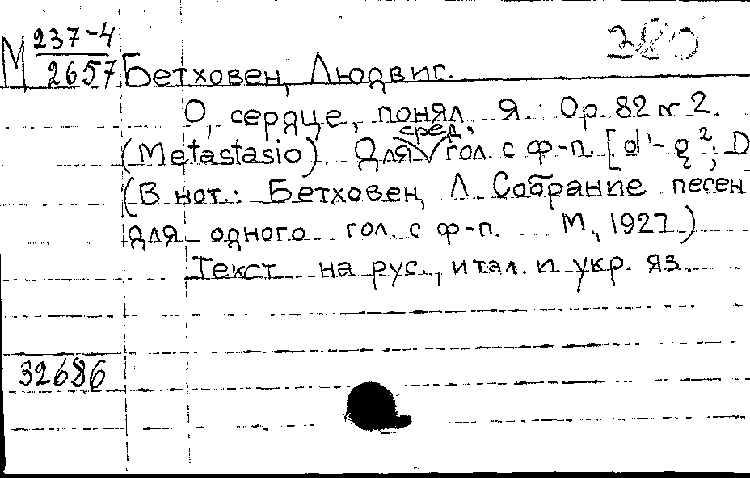 М 237-4
2657
380
Бетховен, Людвиг.
О, сердце, понял я. Op. 82 № 2.
(Metastasio) Для сред. гол. с ф-п. [d'-g²; D
(В нот.: Бетховен, Л. Собрание песен
для одного гол. с ф-п. М., 1927)
Текст на рус., итал. и укр. яз.
32686